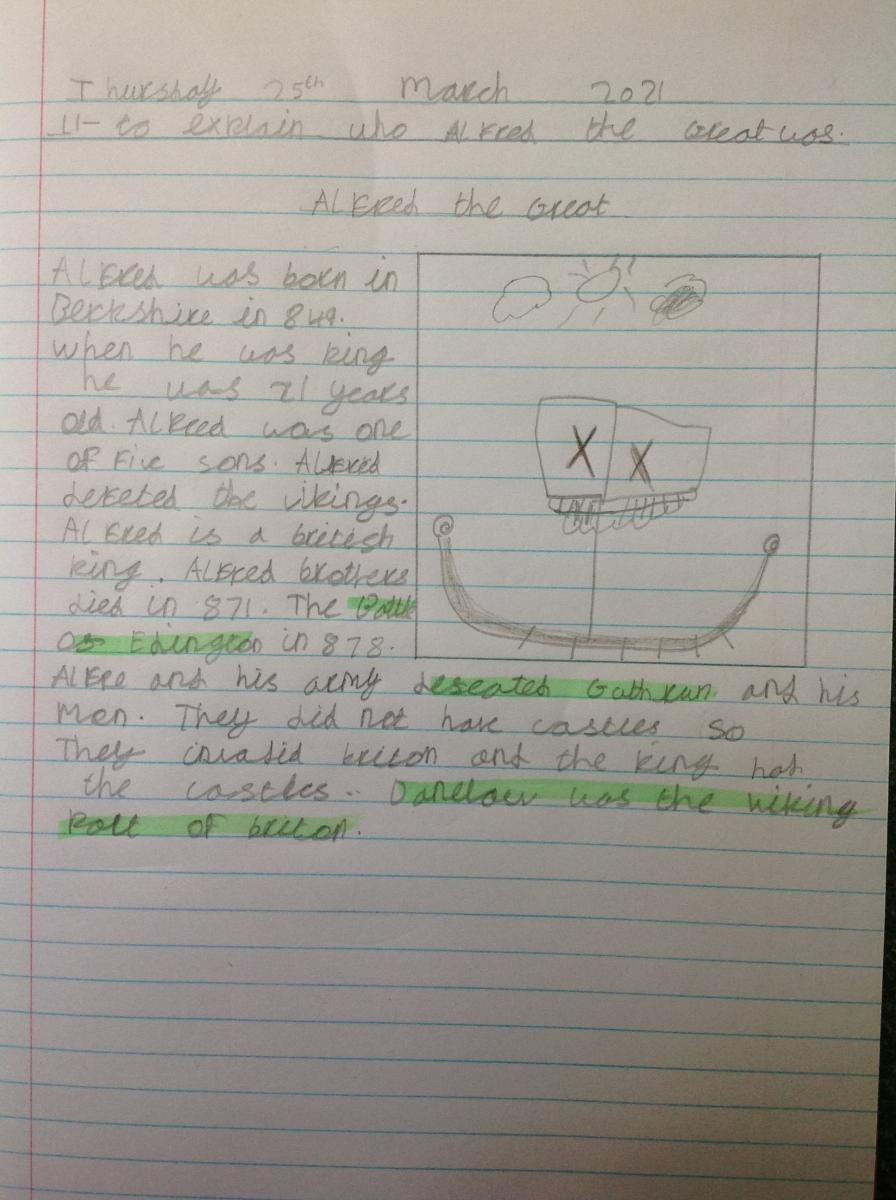 Thursday 25th March 2021
LI- to explain who Alfred the Great was.
Alfred the Great
Alfred was born in
Berkshire in 849.
when he was king
he was 21 years
old. Alfred was one
of five sons. Alfred
defeted the vikings.
Alfred is a british
king. Alfred brothers
died in 871. The Battle
of Edington in 878.
Alfre and his army defeated Guthrum and his
men. They did not have castles so
They invadid briton and the king had
the castles.. Danelaw was the viking
Part of briton.
X X